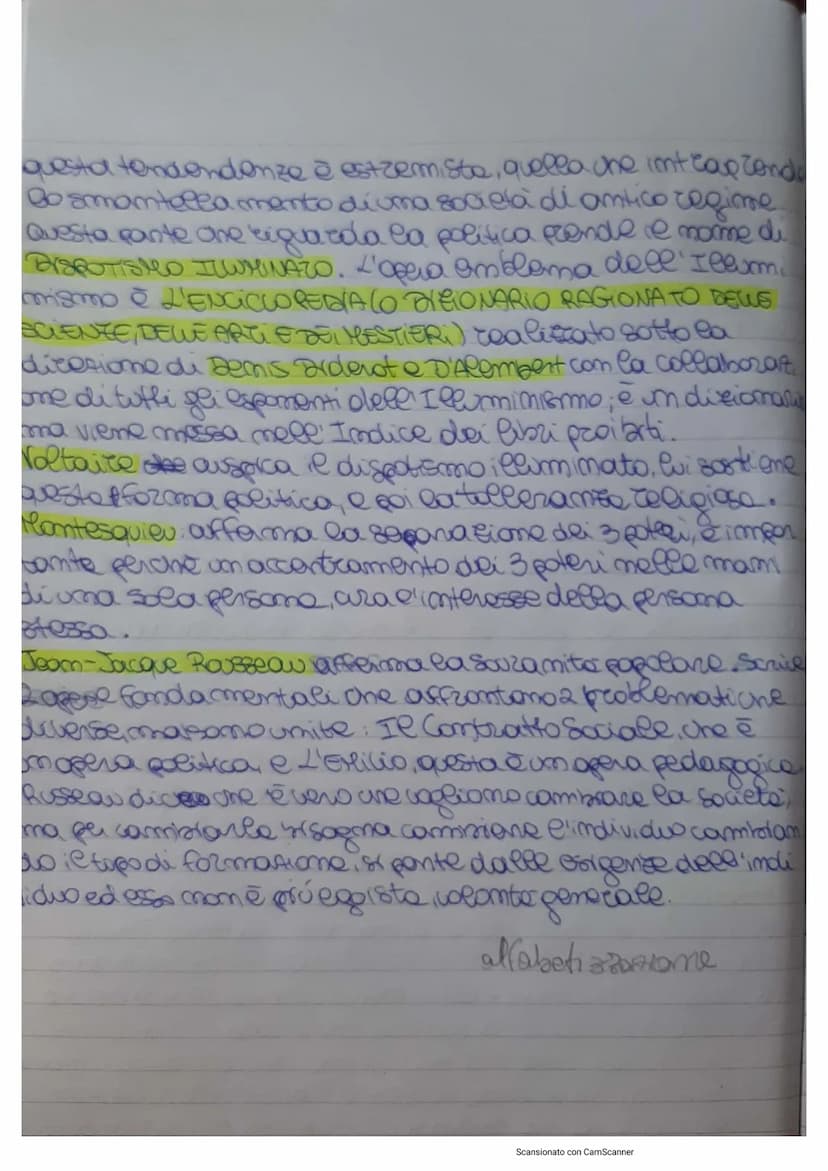 questa tendendenza è estremista, quella che intraprende
lo smantellamento di una società di antico regime
Questa parte che riguarda la politica prende il nome di
DISPOTISMO ILLUMINATO. L'opera emblema dell'Illumi
nismo è L'ENCICLOPEDIA (O DIZIONARIO RAGIONATO DELLE
SCIENZE, DELLE ARTI E DEI MESTIERI) realizzato sotto la
direzione di Denis Diderot e D'Alembert con la collaborazi
one di tutti gli esponenti dell'Illuminismo; è un dizionario
ma viene messa nell'Indice dei libri proibiti.
Voltaire auspica il dispotismo illuminato, lui sostiene
questa forma politica, e poi la tolleranza religiosa.
Montesquieu: afferma la separazione dei 3 poteri, è impor
tante perché un accentramento dei 3 poteri nelle mani
di una sola persona, cura l'interesse della persona
stessa.
Jean-Jacque Rousseau afferma la sovranità popolare. Scrive
2 opere fondamentali che affrontano 2 problematiche
diverse, ma sono unite: Il Contratto Sociale, che è
un'opera politica, e L'Emilio, questa è un'opera pedagogica.
Russeau dice che è vero che vogliamo cambiare la società,
ma per cambiarla bisogna cambiare l'individuo cambian
do il tipo di formazione, si parte dalle esigenze dell'indi
viduo ed esso non è più egoista, volontà generale.
alfabetizzazione
Scansionato con CamScanner